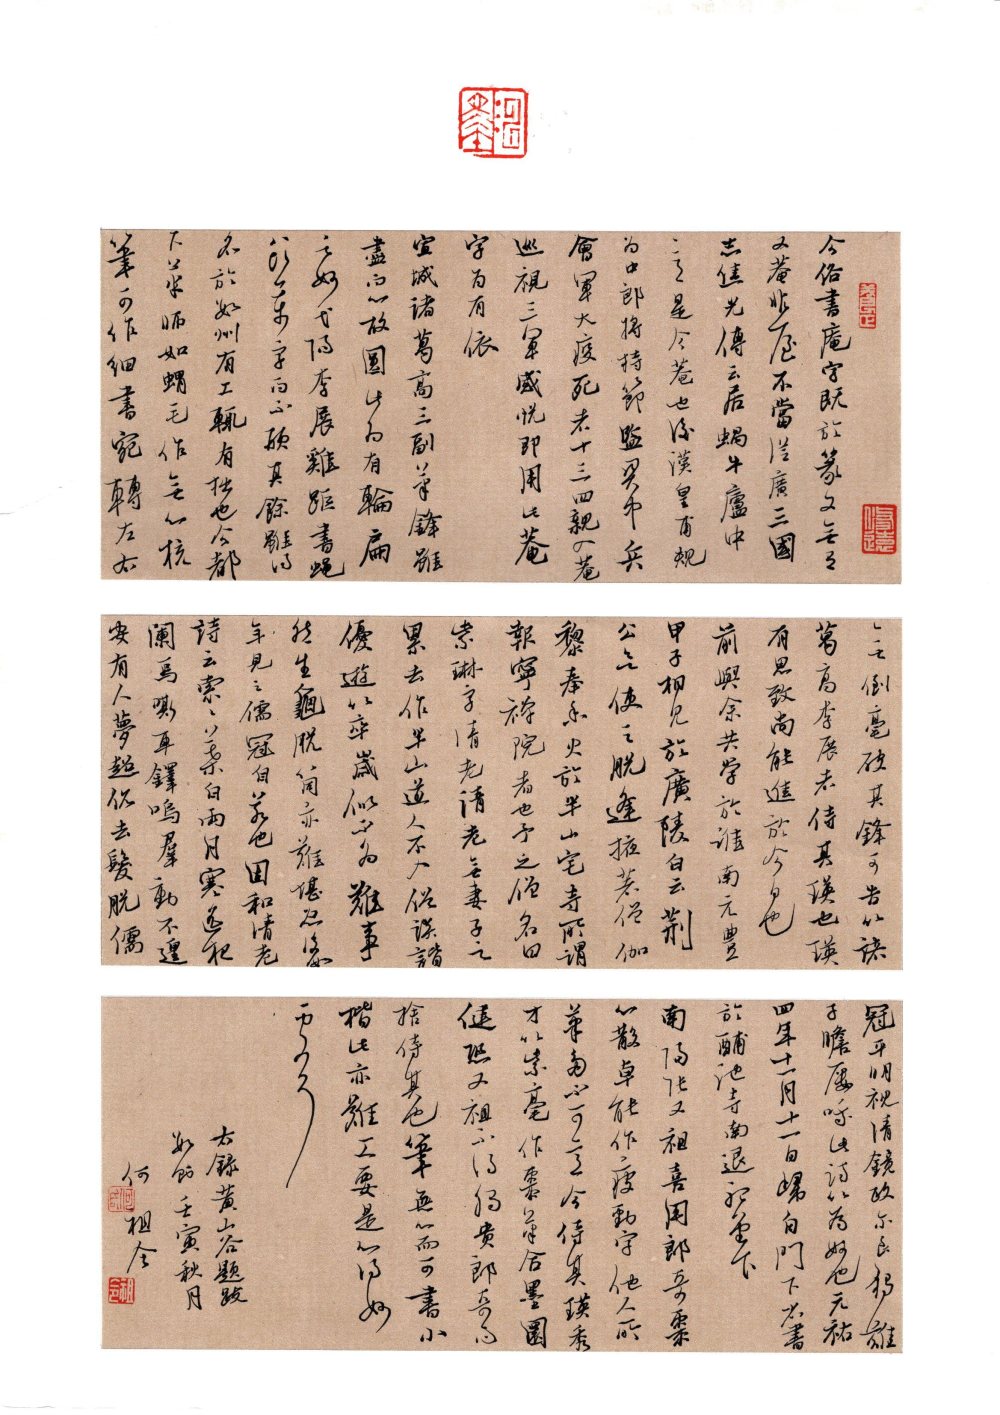 今俗書庵字既於篆文無有
又菴非屋不當從廣三國
志焦光傳云居蝸牛廬中
之言是今菴也後漢皇甫規
為中郎將持節監關中兵
會軍大疫死者十三四親入菴
巡視三軍感悅即用此菴
字為有依
宣城諸葛高三副筆鋒雖
盡而心故圓此為有輪扁
之妙弋陽李展雞距書蠅
頭萬字而不頓其餘雖得
名於數州有工輒有拙也今都
下筆師如蝟毛作無心棗
筆可作細書宛轉左右
無倒毫破其鋒可告以諸
葛高李展者侍其瑛也瑛
有思致尚能進於今日也
前與余共學於淮南元豐
甲子相見於廣陵自云荆
公欲使之脫逢掖著僧伽
黎奉香火於半山宅寺所謂
報寧禪院者也予之僧名曰
紫琳字清老清老無妻子之
累去作半山道人不入俗諧
優遊以卒歲似不為難事
然生龜脫筒亦難堪忍後數
年見之儒冠自若也因和清老
詩云索索葉自雨月寒遙夜
闌馬嘶車鐸鳴羣動不遑
安有人夢超俗去髮脫儒
冠平明視清鏡政爾良獨難
子瞻屢哦此詩以為妙也元祐
四年十一月十一日歸自門下省書
於酺池寺南退聽堂下
南陽張乂祖喜用郎奇棗
心散卓能作瘦勁字他人所
筆多不可意今侍其瑛秀
才以紫毫作棗心筆含墨圓
健恐乂祖不得獨貴郎奇而
捨侍其也筆無心而可書小
楷此亦難工要是心得妙
處耳
右錄黃山谷題跋
數節壬寅秋月
何祖金